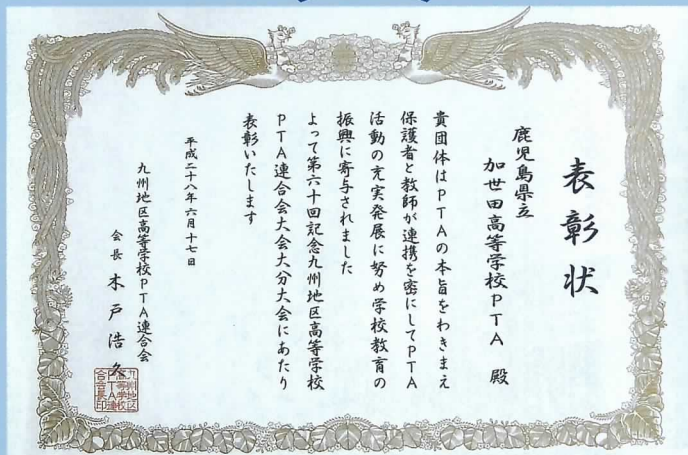 表彰状
鹿児島県立
加世田高等学校PTA 殿
貴団体はPTAの本旨をわきまえ
保護者と教師が連携を密にしてPTA
活動の充実発展に努め学校教育の
振興に寄与されました
よって第六十回記念九州地区高等学校
PTA連合会大会大分大会にあたり
表彰いたします
平成二十八年六月十七日
九州地区高等学校PTA連合会
会長 木戸浩久
九州地区
高等学校
PTA連
合会長印